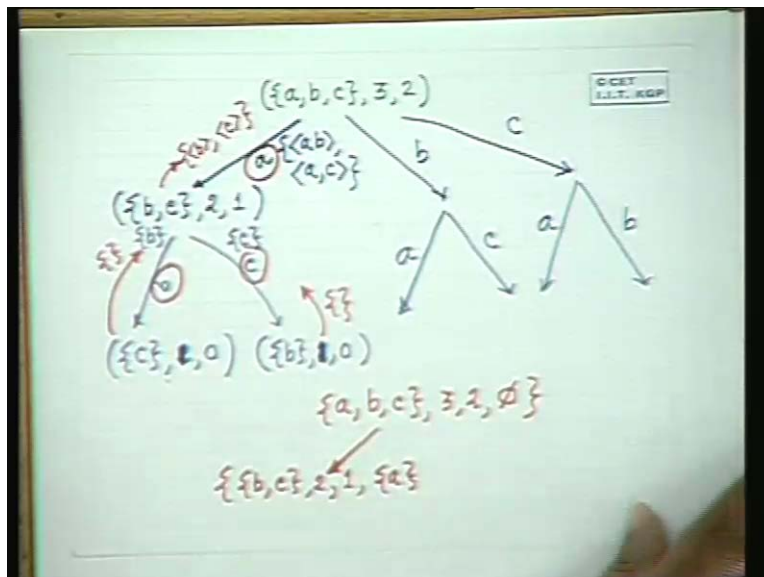 ({a,b,c},3,2)
© CET
I.I.T. KGP
c
{⟨b⟩,⟨c⟩}
a
{⟨ab⟩,
⟨a,c⟩}
b
({b,c},2,1)
{b}
{c}
{}
b
c
a
c
a
b
{}
({c},1,0)
({b},1,0)
{a,b,c},3,2,∅}
{{b,c},2,1,{a}